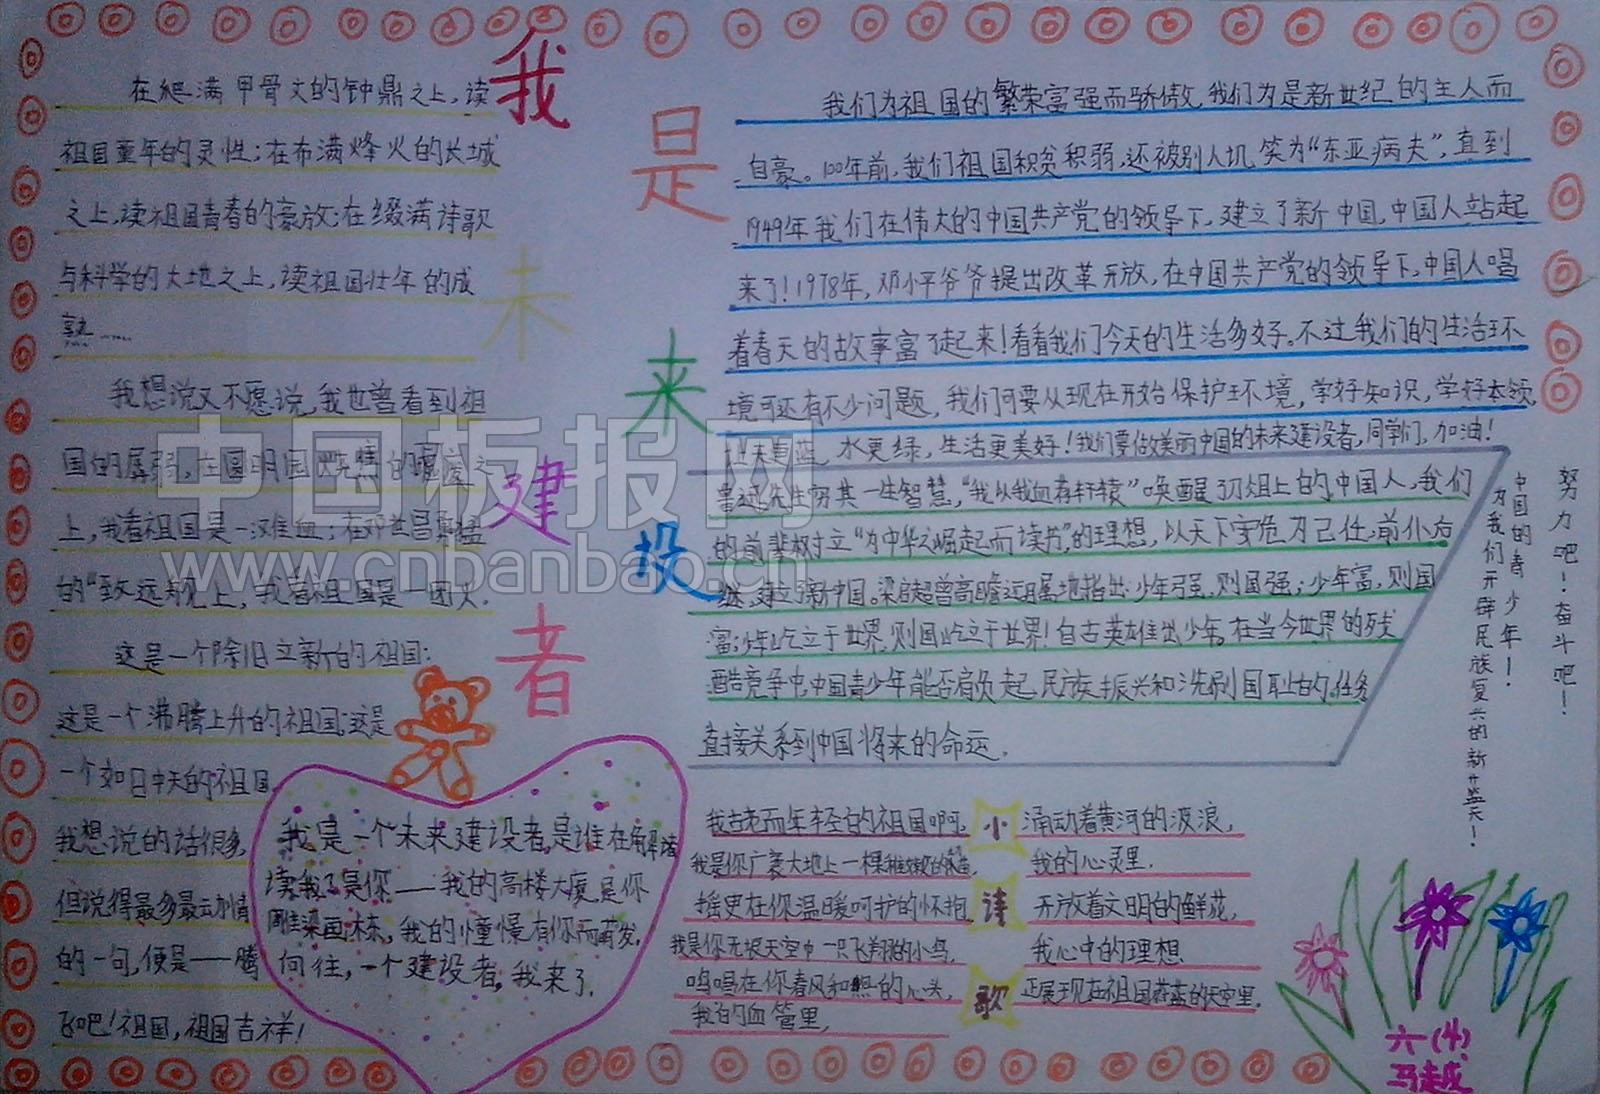 我是未来建设者
在爬满甲骨文的钟鼎之上,读
祖国童年的灵性;在布满烽火的长城
之上,读祖国青春的豪放;在缀满诗歌
与科学的大地之上,读祖国壮年的成
熟……
我想说又不愿说,我也曾看到祖
国的孱弱,在圆明园
上,我看祖国是一滩血;在邓世昌
的"致远舰"上,我看祖国是一团火.
这是一个除旧立新的祖国;
这是一个沸腾上升的祖国;这是
一个如日中天的祖国
我想说的话很多,
但说得最多最动情
的一句,便是——腾
飞吧!祖国,祖国吉祥!
我是一个未来建设者,是谁在解读
读我?是你——我的高楼大厦,是你
雕梁画栋,我的憧憬有你而萌发,
向往,一个建设者,我来了.
我们为祖国的繁荣富强而骄傲,我们为是新世纪的主人而
自豪。100年前,我们祖国积贫积弱,还被别人讥笑为"东亚病夫",直到
1949年我们在伟大的中国共产党的领导下,建立了新中国,中国人站起
来了!1978年,邓小平爷爷提出改革开放,在中国共产党的领导下,中国人唱
着春天的故事富了起来!看看我们今天的生活多好。不过我们的生活环
境可还有不少问题,我们可要从现在开始保护环境,学好知识,学好本领,
让未更蓝,水更绿,生活更美好!我们要做美丽中国的未来建设者,同学们,加油!
鲁迅先生穷其一生智慧,"我以我血荐轩辕"唤醒了刀俎上的中国人,我们
的前辈树立"为中华之崛起而读书"的理想,以天下安危为己任,前仆后
继,建立了新中国。梁启超曾高瞻远瞩地指出:少年强,则国强;少年富,则国
富;少年屹立于世界,则国屹立于世界!自古英雄出少年,在当今世界的残
酷竞争中,中国青少年能否肩负起民族振兴和洗刷国耻的任务
直接关系到中国将来的命运.
努力吧!奋斗吧!
中国的青少年!
为我们开辟民族复兴的新篇章!
小诗歌
我古老而年轻的祖国啊,
我是你广袤大地上一棵稚嫩的
摇曳在你温暖呵护的怀抱
我是你无垠天空中一只飞翔的小鸟,
鸣唱在你春风和煦的心头,
我的血管里,
涌动着黄河的波浪,
我的心灵里.
开放着文明的鲜花,
我心中的理想
正展现在祖国蔚蓝的天空里.
六(4)
马越
中国板报网
www.cnbanbao.cn